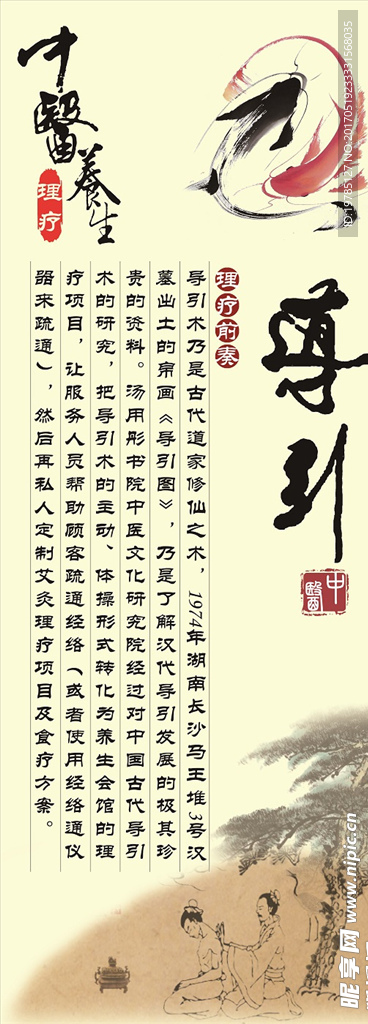 中醫養生
理疗
导引
中醫
理疗前奏
导引术乃是古代道家修仙之术，1974年湖南长沙马王堆3号汉
墓出土的帛画《导引图》，乃是了解汉代导引发展的极其珍
贵的资料。汤用彤书院中医文化研究院经过对中国古代导引
术的研究，把导引术的主动、体操形式转化为养生会馆的理
疗项目，让服务人员帮助顾客疏通经络（或者使用经络通仪
器来疏通），然后再私人定制艾灸理疗项目及食疗方案。
ID:19785127 NO:20170519233331568035
昵享网 www.nipic.cn